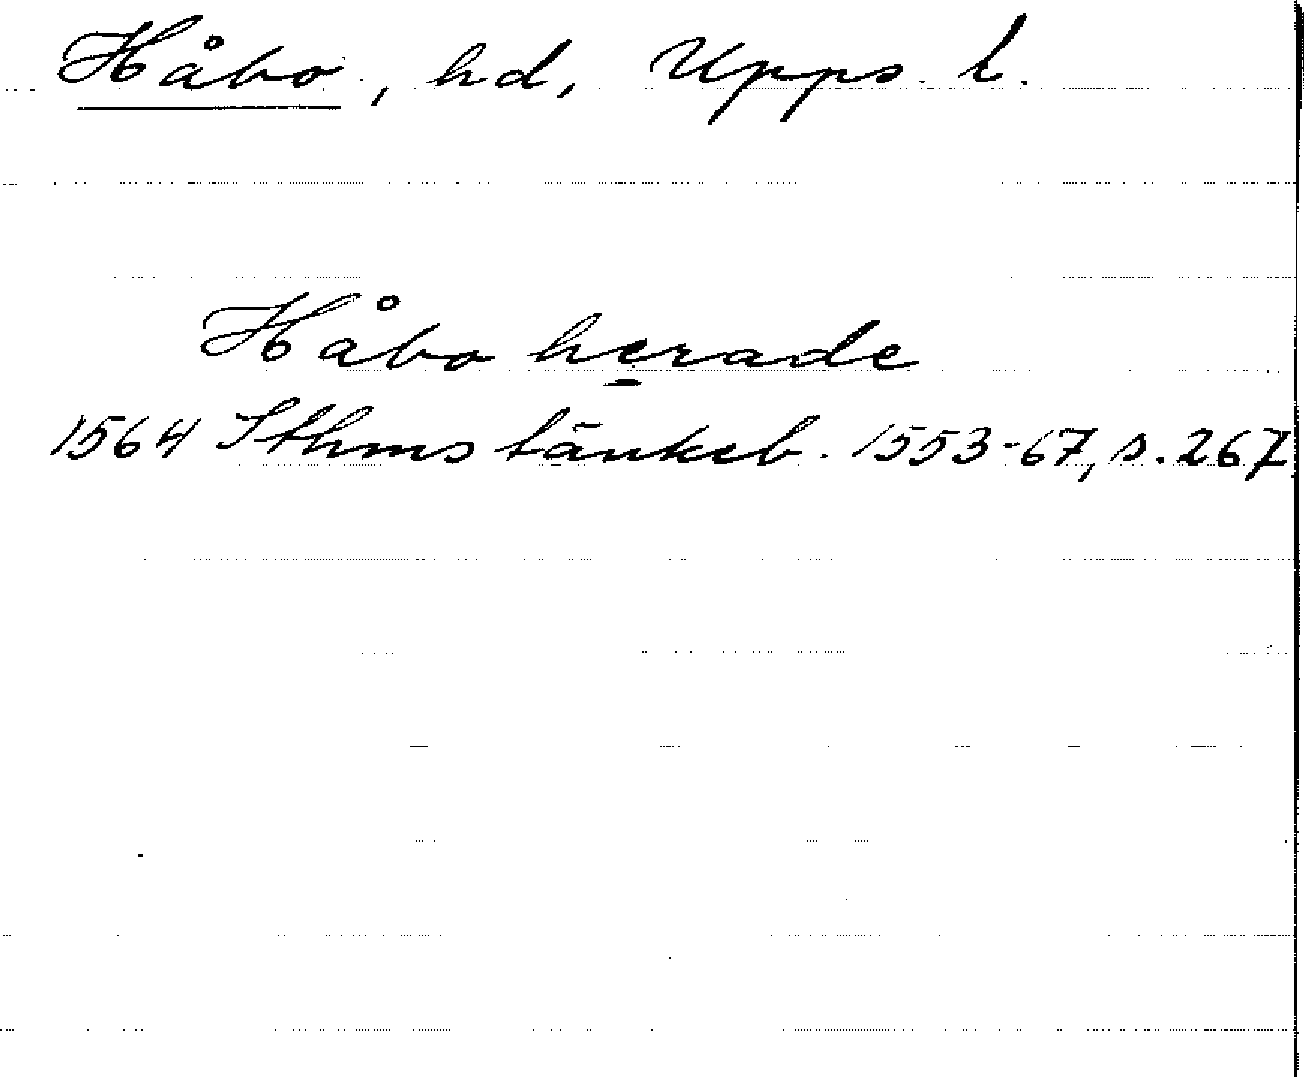 Håbo, hd, Upps. l.
Håbo herade
1564 Sthms tänkeb. 1553-67, s. 267